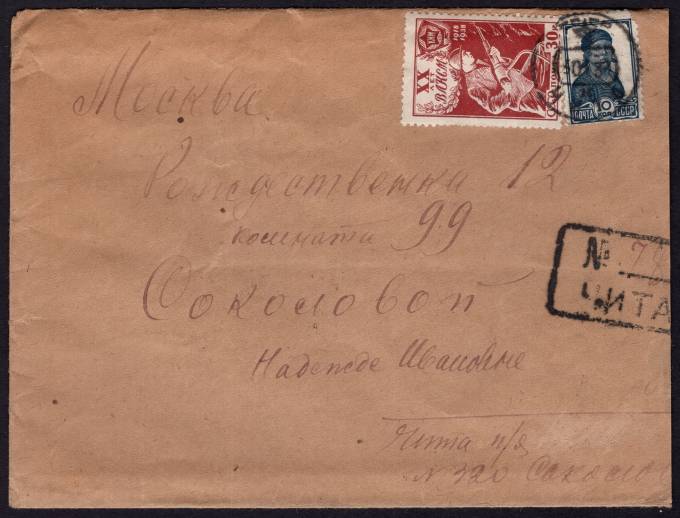 XX
ЛЕТ
ВЛКСМ
1918
1938
30
10
ПОЧТА
СССР
Москва
Рождественка 12
комната 99
Соколовой
Надежде Ивановне
№ 78
ЧИТА
Чита п/я
№ 320 Соколо